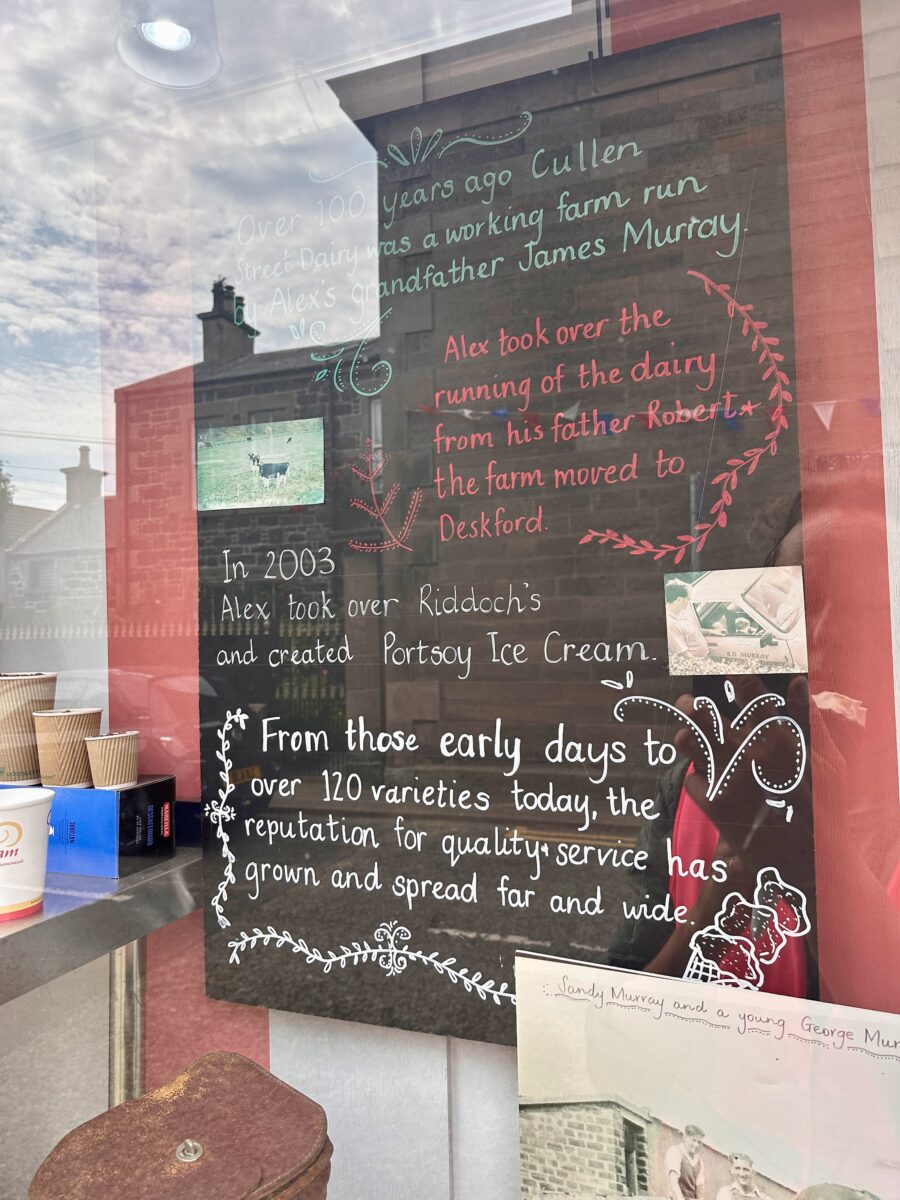 Over 100 years ago Cullen
Street Dairy was a working farm run
by Alex's grandfather James Murray.
Alex took over the
running of the dairy
from his father Robert*
the farm moved to
Deskford.
In 2003
Alex took over Riddoch's
and created Portsoy Ice Cream.
R.D. MURRAY
From those early days to
over 120 varieties today, the
reputation for quality & service has
grown and spread far and wide.
Sandy Murray and a young George Mur
am